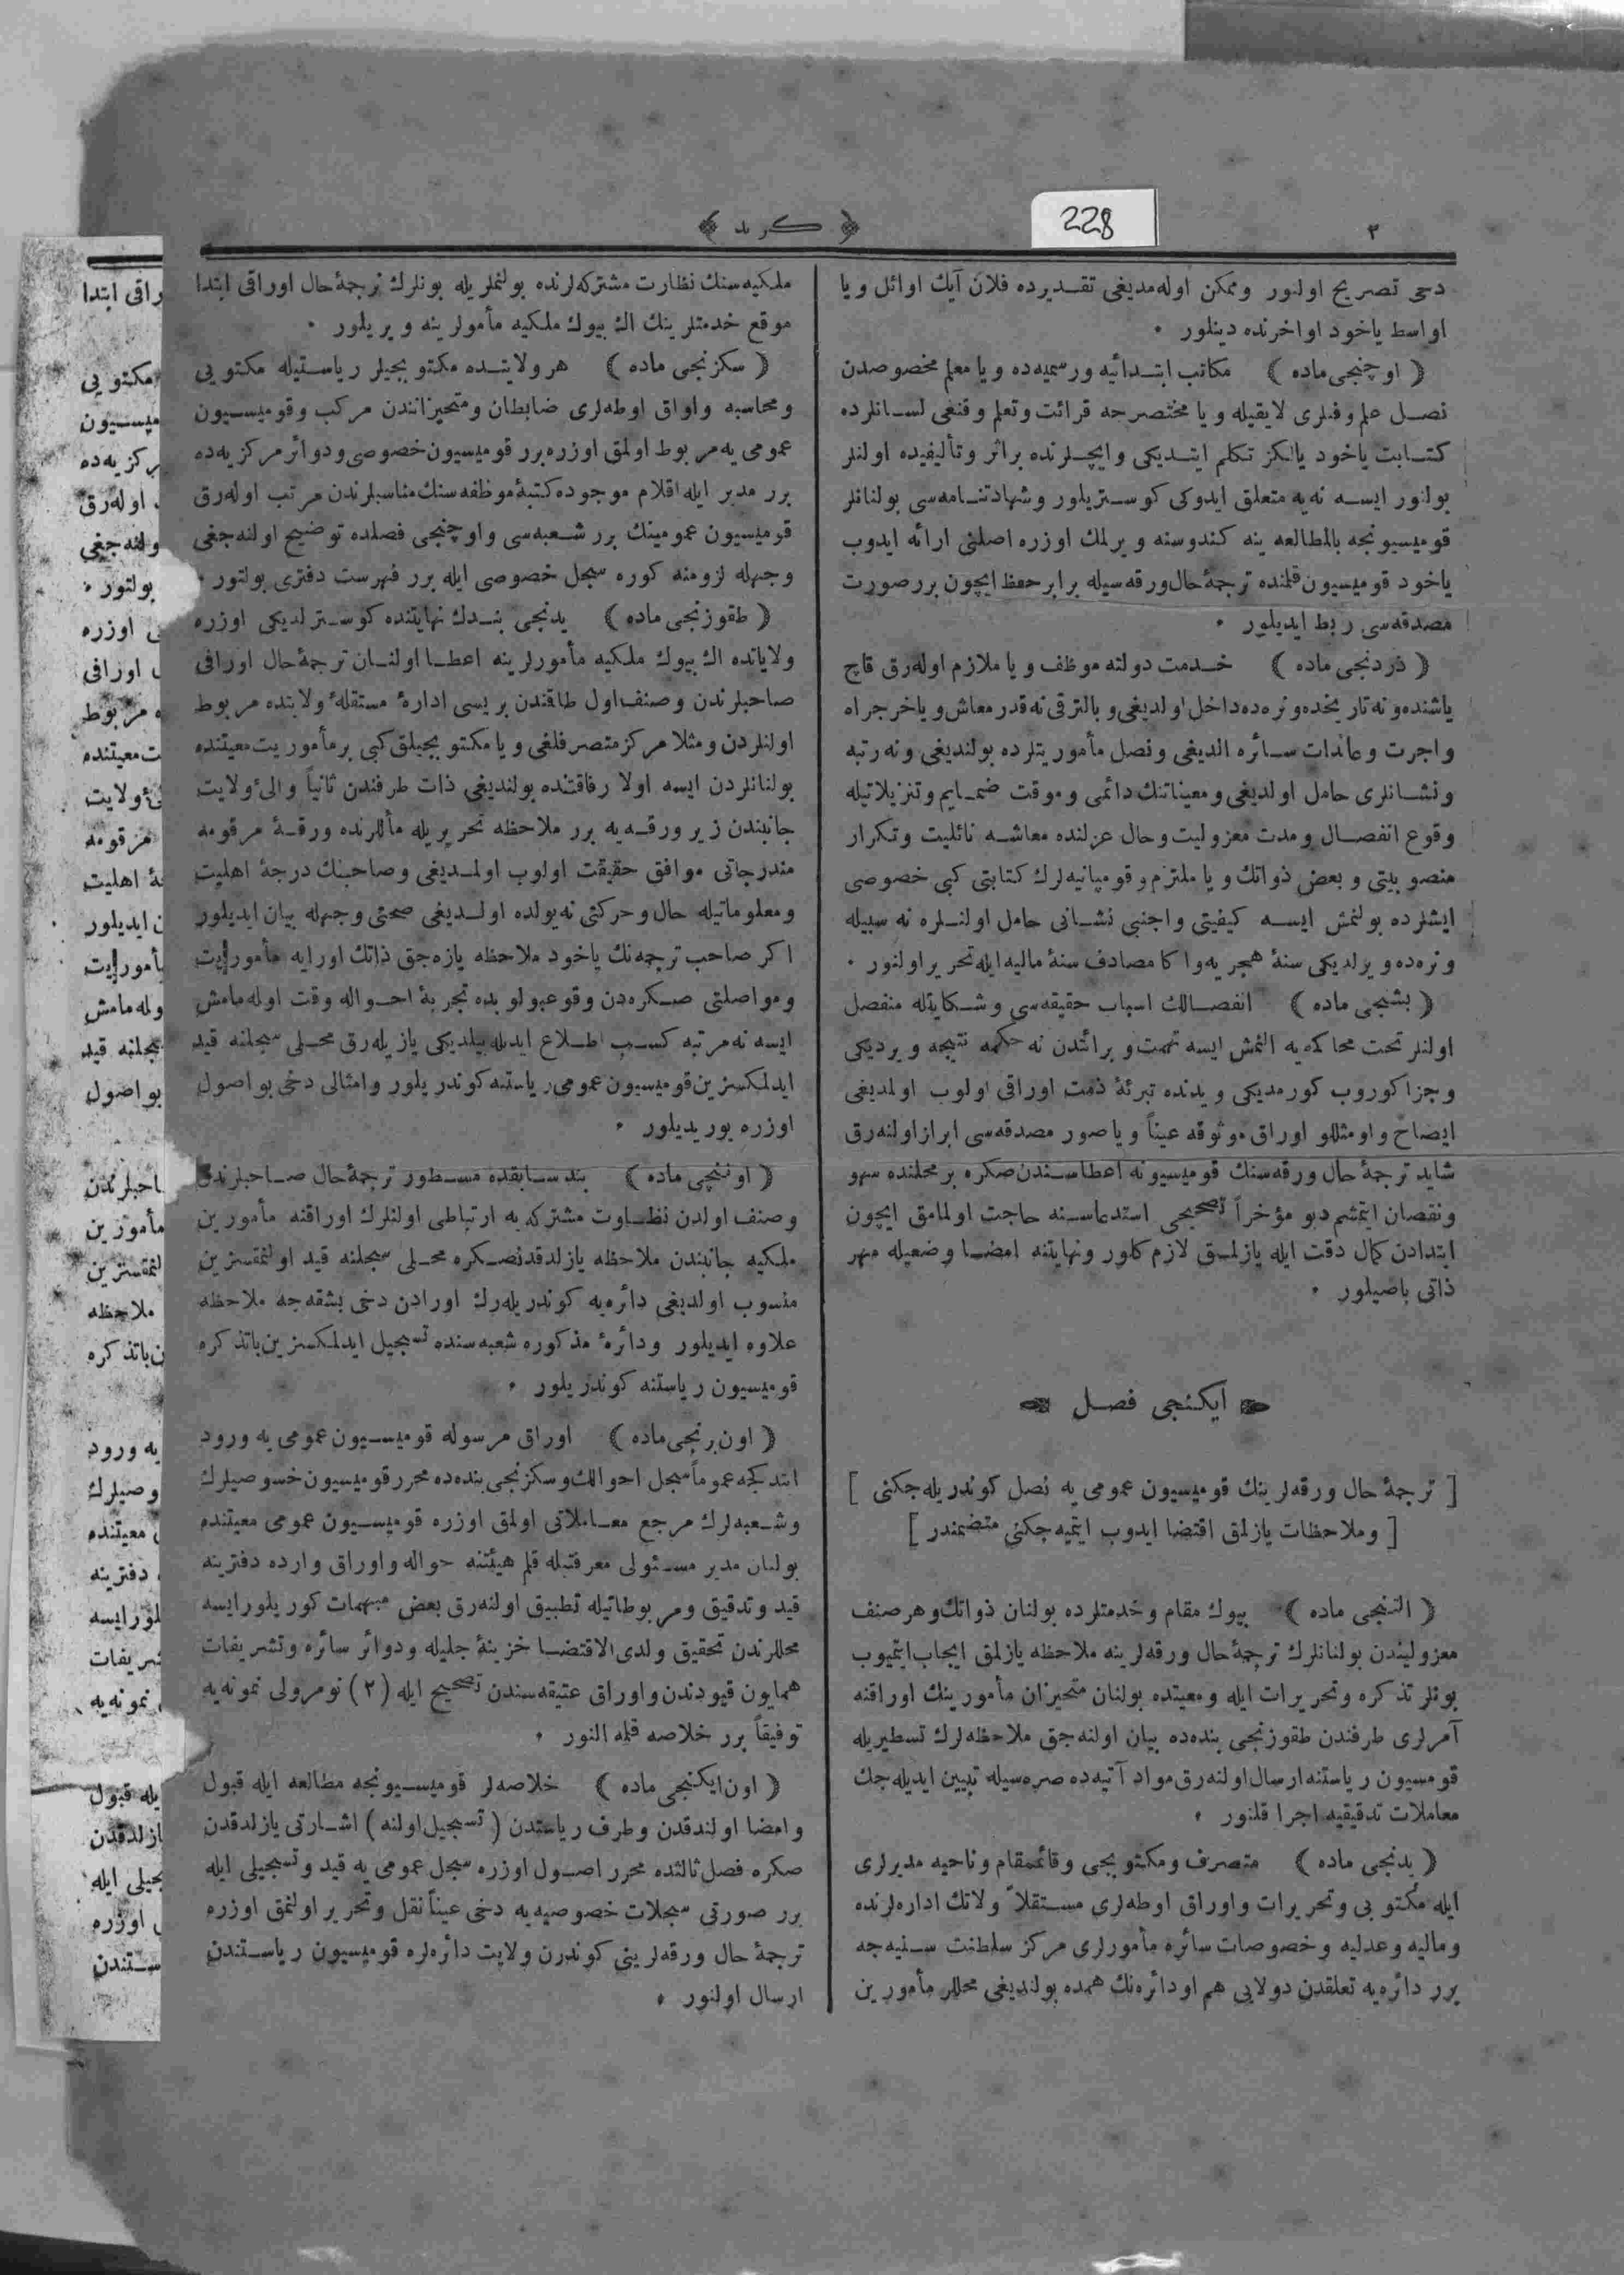 ٣
﴿ كريد ﴾
228
دخی تصريح اولنور وممكن اوله‌مديغی تقديرده فلان آيك اوائل ويا
اواسط ياخود اواخرنده دينلور ٠
( اوچنجی ماده ) مكاتب ابتدائيه ورسميه‌ده ويا معلم مخصوصدن
نصل علم وفنلری لايقيله ويا مختصرجه قرائت وتعلم وقنغی لسانلرده
كتابت ياخود يالكز تكلم ايتديكی وايچلرنده براثر وتأليفيده اولنلر
بولنور ايسه نه‌يه متعلق ايدوكی كوستريلور وشهادتنامه‌سی بولنانلر
قوميسيونجه بالمطالعه ينه كندوسنه ويرلمك اوزره اصلنی ارائه ايدوب
ياخود قوميسيون قلمنده ترجمهٔ حال ورقه‌سيله برابر حفظ ايچون برر صورت
مصدقه‌سی ربط ايديلور ٠
( دردنجی ماده ) خدمت دولته موظف ويا ملازم اوله‌رق قاچ
ياشنده ونه تاريخده ونره‌ده داخل اولديغی وبالترقی نه قدر معاش وياخرجراه
واجرت وعائدات سائره الديغی ونصل مأموريتلرده بولنديغی ونه رتبه
ونشانلری حامل اولديغی ومعيناتنك دائمی وموقت ضمايم وتنزيلاتيله
وقوع انفصال ومدت معزوليت وحال عزلنده معاشه نائليت وتكرار
منصوبيتی وبعض ذواتك ويا ملتزم وقومپانيه‌لرك كتابتی كبی خصوصی
ايشلرده بولنمش ايسه كيفيتی واجنبی نشانی حامل اولنلره نه سبيله
ونره‌ده ويرلديكی سنهٔ هجريه واكا مصادف سنهٔ ماليه ايله تحرير اولنور ٠
( بشنجی ماده ) انفصالك اسباب حقيقه‌سی وشكايتله منفصل
اولنلر تحت محاكمه‌يه النمش ايسه تهمت وبرائتدن نه حكمه نتيجه ويرديكی
وجزا كوروب كورمديكی ويدنده تبرئهٔ ذمت اوراقی اولوب اولمديغی
ايضاح واومثللو اوراق موثوقه عيناً ويا صور مصدقه‌سی ابراز اولنه‌رق
شايد ترجمهٔ حال ورقه‌سنك قوميسيونه اعطاسندن صكره برمحلنده سهو
ونقصان ايتمشم ديو مؤخراً تصحيحی استدعاسنه حاجت اولمامق ايچون
ابتدادن كمال دقت ايله يازلمق لازم كلور ونهايتنه امضا وضعيله مهر
ذاتی باصيلور ٠
ايكنجی فصل
[ ترجمهٔ حال ورقه‌لرينك قوميسيون عمومی‌يه نصل كوندريله‌جكنی ]
[ وملاحظات يازلمق اقتضا ايدوب ايتميه‌جكنی متضمندر ]
( التنجی ماده ) بيوك مقام وخدمتلرده بولنان ذواتك وهر صنف
معزوليندن بولنانلرك ترجمهٔ حال ورقه‌لرينه ملاحظه يازلمق ايجاب ايتميوب
بونلر تذكره وتحريرات ايله ومعيتده بولنان متحيزان مأمورينك اوراقنه
آمرلری طرفندن طقوزنجی بنده‌ده بيان اولنه‌جق ملاحظه‌لرك تسطيريله
قومسيون رياستنه ارسال اولنه‌رق مواد آتيه‌ده صره‌سيله تبيين ايديله‌جك
معاملات تدقيقيه اجرا قلنور ٠
( يدنجی ماده ) متصرف ومكتوبجی وقائممقام وناحيه مديرلری
ايله مكتوبی وتحريرات واوراق اوطه‌لری مستقلاً ولاتك اداره‌لرنده
وماليه وعدليه وخصوصات سائره مأمورلری مركز سلطنت سنيه‌جه
برر دائره‌يه تعلقدن دولايی هم اودائره‌نك همده بولنديغی محللر مأمورين
ملكيه‌سنك نظارت مشتركه‌لرنده بولنملريله بونلرك ترجمهٔ حال اوراقی ابتدا
موقع خدمتلرينك اك بيوك ملكيه مأمورلرينه ويريلور ٠
( سكزنجی ماده ) هر ولايتده مكتوبجيلر رياستيله مكتوبی
ومحاسبه واوراق اوطه‌لری ضابطان ومتحيزانندن مركب وقوميسيون
عمومی‌يه مربوط اولمق اوزره برر قوميسيون خصوصی ودوائر مركزيه‌ده
برر مدير ايله اقلام موجوده كتبهٔ موظفه سنك مناسبلرندن مرتب اوله‌رق
قوميسيون عمومينك برر شعبه‌سی واوچنجی فصلده توضيح اولنه‌جغی
وجهله لزومنه كوره سجل خصوصی ايله برر فهرست دفتری بولنور ٠
( طقوزنجی ماده ) يدنجی بندك نهايتنده كوسترلديكی اوزره
ولاياتده اك بيوك ملكيه مأمورلرينه اعطا اولنان ترجمهٔ حال اوراقی
صاحبلرندن وصنف اول طاقندن بريسی ادارهٔ مستقلهٔ ولايتده مربوط
اولنلردن ومثلا مركز متصرفلغی ويا مكتوبجيلق كبی برمأموريت معيتنده
بولنانلردن ايسه اولا رفاقتنده بولنديغی ذات طرفندن ثانياً والیٔ ولايت
جانبندن زير ورقه‌يه برر ملاحظه تحريريله مأللرنده ورقهٔ مرقومه
مندرجاتی موافق حقيقت اولوب اولمديغی وصاحبنك درجهٔ اهليت
ومعلوماتيله حال وحركتی نه يولده اولديغی صحتی وجهله بيان ايديلور
اكر صاحب ترجمه‌نك ياخود ملاحظه يازه‌جق ذاتك اورايه مأموريت
ومواصلتی صكره‌دن وقوعبولوبده تجربهٔ احواله وقت اوله‌مامش
ايسه نه مرتبه كسب اطلاع ايديله‌بيلديكی يازيله‌رق محلی سجلنه قيد
ايدلمكسزين قوميسيون عمومی رياستنه كوندريلور وامثالی دخی بو اصول
اوزره يوريديلور ٠
( اوننجی ماده ) بند سابقده مسطور ترجمهٔ حال صاحبلرندن
وصنف اولدن نظارت مشتركه‌يه ارتباطی اولنلرك اوراقنه مأمورين
ملكيه جانبندن ملاحظه يازلدقدنصكره محلی سجلنه قيد اولنمقسزين
منسوب اولديغی دائره‌يه كوندريله‌رك اورادن دخی بشقه‌جه ملاحظه
علاوه ايديلور ودائرهٔ مذكوره شعبه‌سنده تسجيل ايدلمكسزين باتذكره
قوميسيون رياستنه كوندريلور ٠
( اون برنجی ماده ) اوراق مرسوله قوميسيون عمومی‌يه ورود
ايتدكجه عموماً سجل احوالك وسكزنجی بنده‌ده محرر قوميسيون خصوصيلرك
وشعبه‌لرك مرجع معاملاتی اولمق اوزره قوميسيون عمومی معيتنده
بولنان مدير مسئولی معرفتيله قلم هيئتنه حواله واوراق وارده دفترينه
قيد وتدقيق ومربوطاتيله تطبيق اولنه‌رق بعض مبهمات كوريلور ايسه
محللرندن تحقيق ولدی الاقتضا خزينهٔ جليله ودوائر سائره وتشريفات
همايون قيودندن واوراق عتيقه سندن تصحيح ايله (٢) نومرولی نمونه‌يه
توفيقاً برر خلاصه قلمه النور ٠
( اون ايكنجی ماده ) خلاصه‌لر قوميسيونجه مطالعه ايله قبول
وامضا اولندقدن وطرف رياستدن ( تسجيل اولنه ) اشارتی يازلدقدن
صكره فصل ثالثده محرر اصول اوزره سجل عمومی‌يه قيد وتسجيلی ايله
برر صورتی سجلات خصوصيه‌يه دخی عيناً نقل وتحرير اولنمق اوزره
ترجمهٔ حال ورقه‌لرينی كوندرن ولايت دائره‌لره قوميسيون رياستندن
ارسال اولنور ٠
راقی ابتدا
مكتوبی
ميسيون
ركزيه‌ده
اوله‌رق
ولنه‌جغی
بولنور ٠
اوزره
اوراقی
مربوط
ت معيتنده
یٔ ولايت
مرقومه
هٔ اهليت
ن ايديلور
أموريت
وله‌مامش
سجلنه قيد
بو اصول
احبلرندن
مأمورين
لنمقسزين
ملاحظه
ن باتذكره
يه ورود
وصيلرك
معيتنده
دفترينه
لور ايسه
شريفات
نمونه‌يه
يله قبول
ازلدقدن
جيلی ايله
اوزره
ستندن